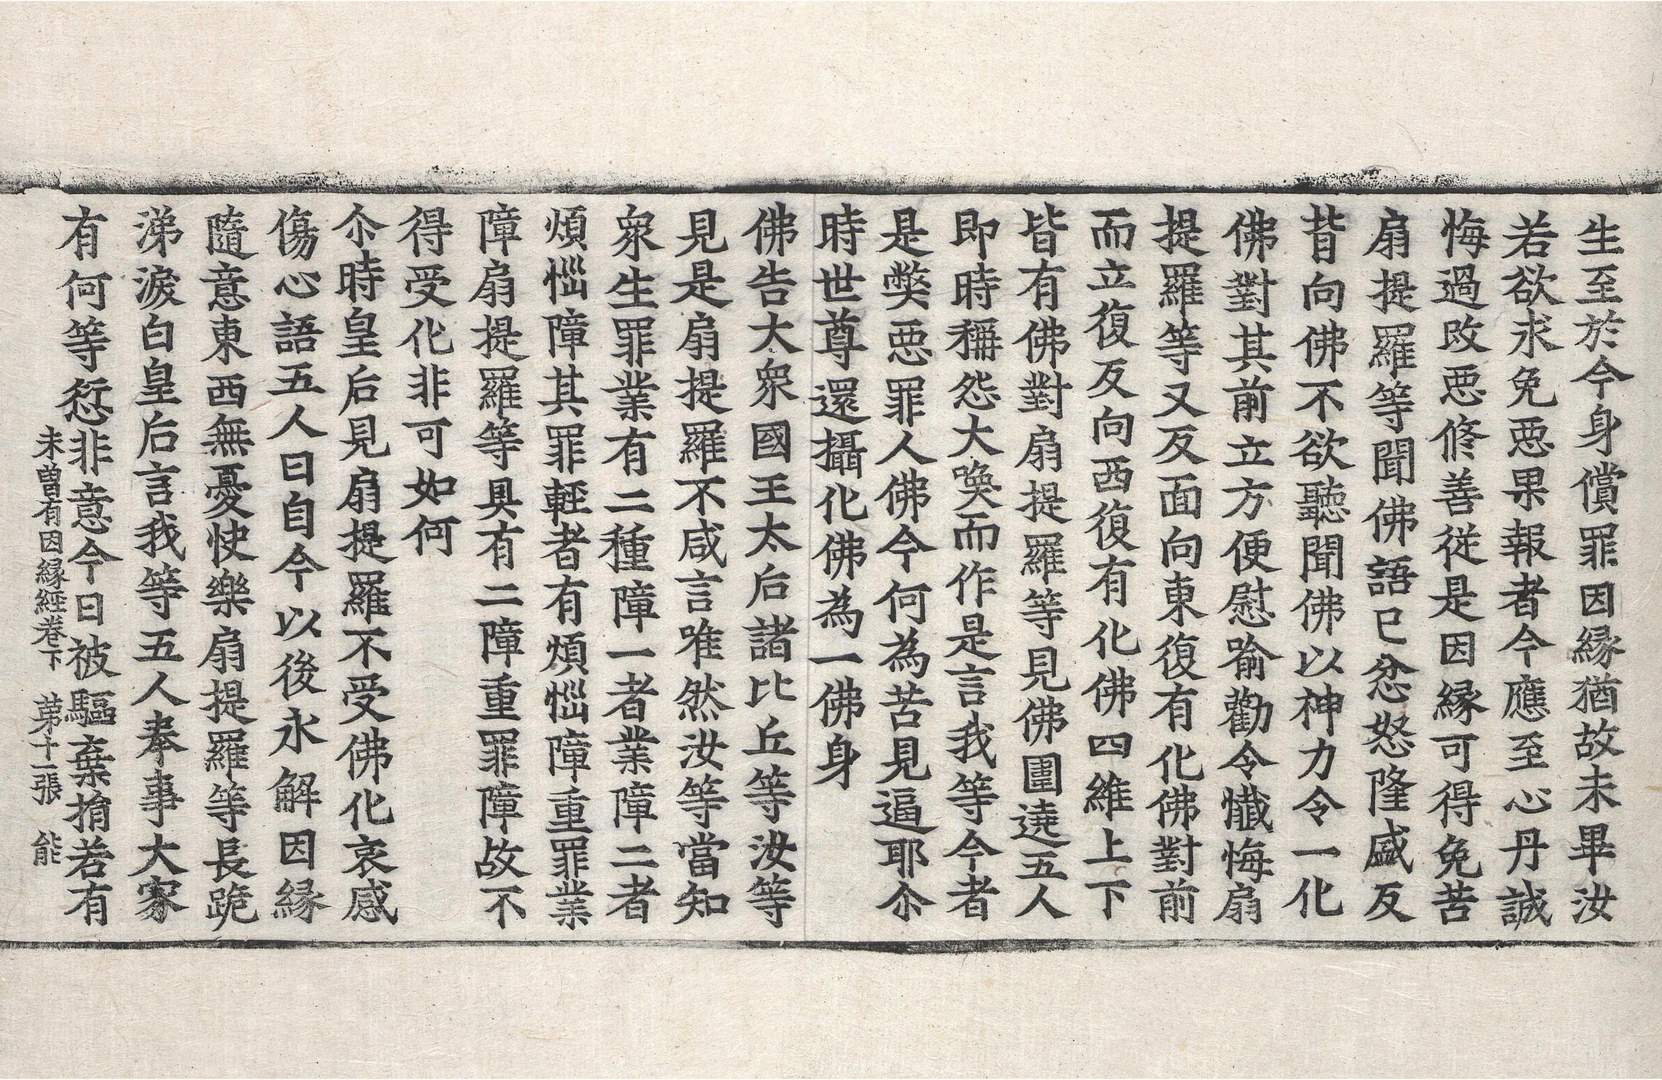 生至於今身償罪因縁猶故未畢汝
若欲求免惡果報者今應至心丹誠
悔過改惡脩善従是因縁可得免苦
扇提羅等聞佛語已忿怒隆盛反
背向佛不欲聽聞佛以神力令一化
佛對其前立方便慰喻勸令懺悔扇
提羅等又反面向東復有化佛對前
而立復反向西復有化佛四維上下
皆有佛對扇提羅等見佛圍遶五人
即時稱怨大喚而作是言我等今者
是弊惡罪人佛今何為苦見逼耶尒
時世尊還攝化佛為一佛身
佛告大衆國王太后諸比丘等汝等
見是扇提羅不咸言唯然汝等當知
衆生罪業有二種障一者業障二者
煩惱障其罪輕者有煩惱障重罪業
障扇提羅等具有二障重罪障故不
得受化非可如何
尒時皇后見扇提羅不受佛化哀感
傷心語五人曰自今以後永解因縁
隨意東西無憂快樂扇提羅等長跪
涕淚白皇后言我等五人奉事大家
有何等愆非意今日被驅棄捐若有
未曽有因縁經卷下 苐十一張 能